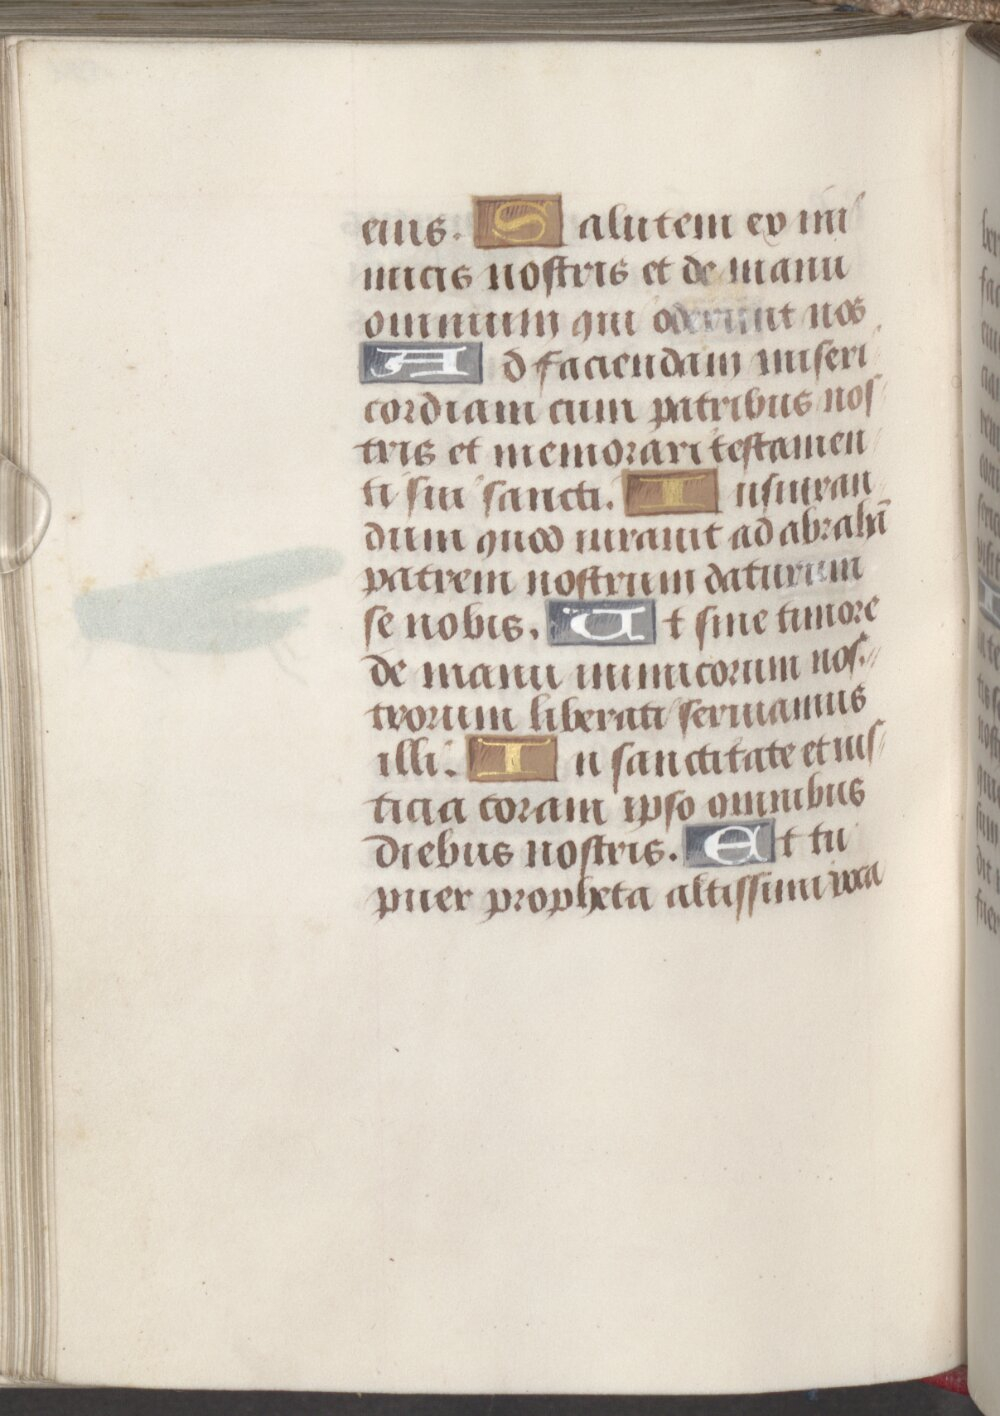 eius. Salutem ex ini
micis nostris et de manu
omnium qui oderunt nos
Ad faciendam miseri
cordiam cum patribus nos
tris et memorari testamen
ti sui sancti. Iusiuran
dum quod iuravit ad abrahā
patrem nostrum daturum
se nobis. Ut sine timore
de manu inimicorum nos
trorum liberati serviamus
illi. In sanctitate et ius
ticia coram ipso omnibus
diebus nostris. Et tu
puer propheta altissimi voca